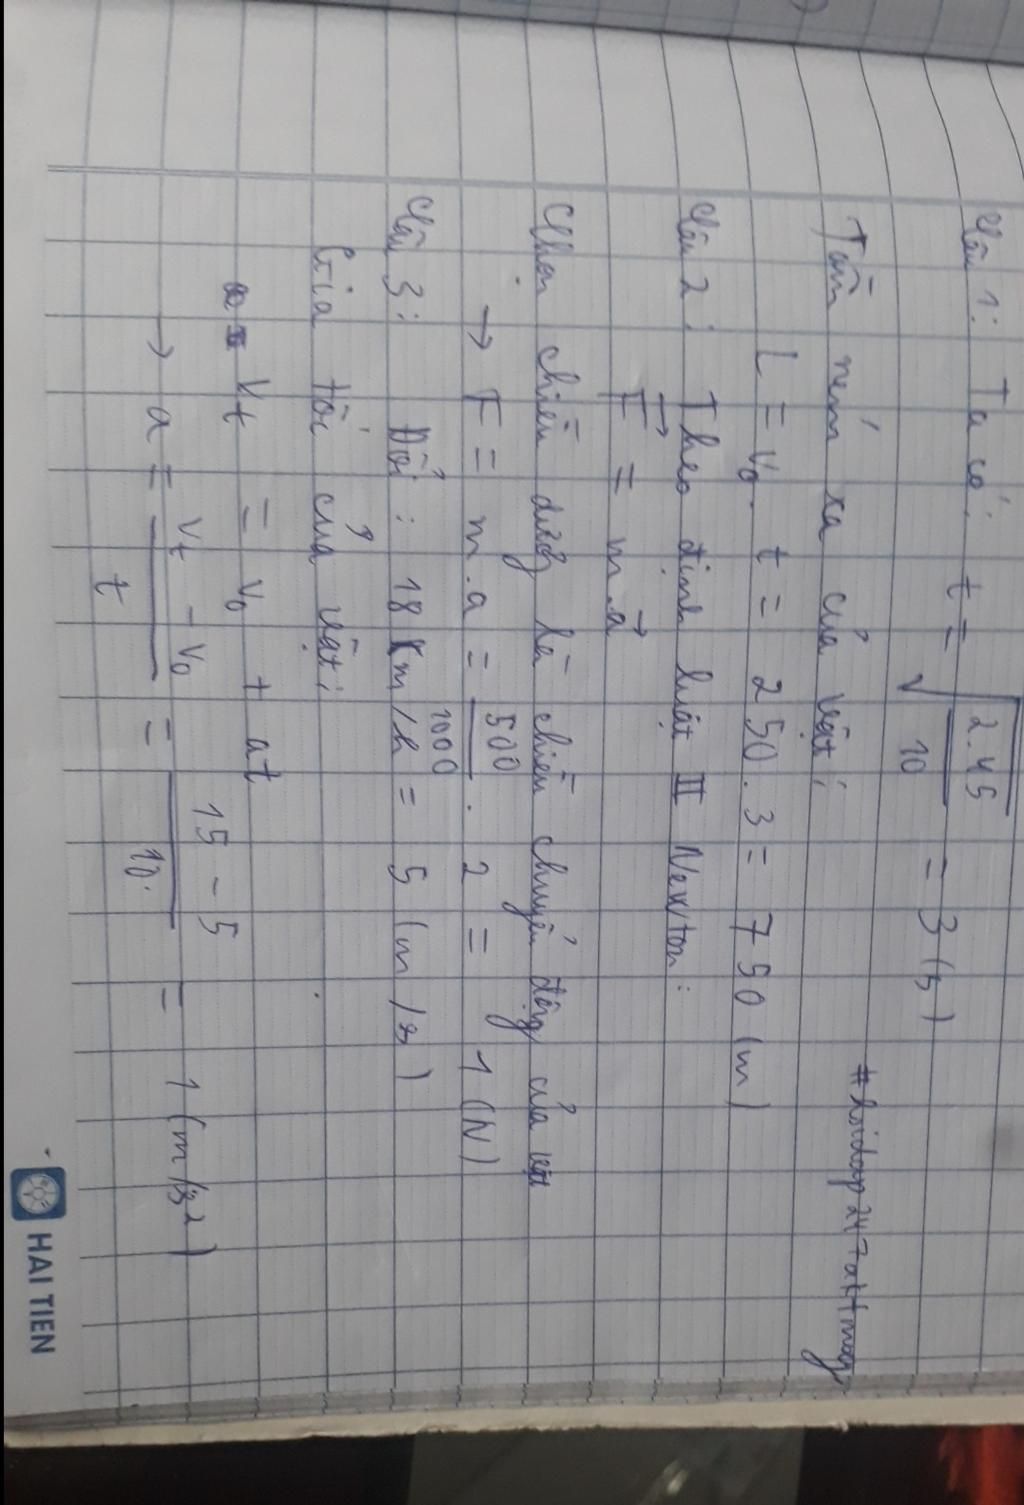 Câu 1: Ta có: t = √(2.45/10) = 3 (s)
Tầm ném xa của vật:
L = v₀. t = 250. 3 = 750 (m)
Câu 2: Theo định luật II Newton:
F⃗ = m.a⃗
Chọn chiều dương là chiều chuyển động của vật
→ F = m.a = 500/1000 . 2 = 1 (N)
Câu 3: Đổi: 18 km/h = 5 (m/s)
Gia tốc của vật:
vt = v₀ + at
→ a = (vt - v₀)/t = (15 - 5)/10 = 1 (m/s²)
HAI TIEN